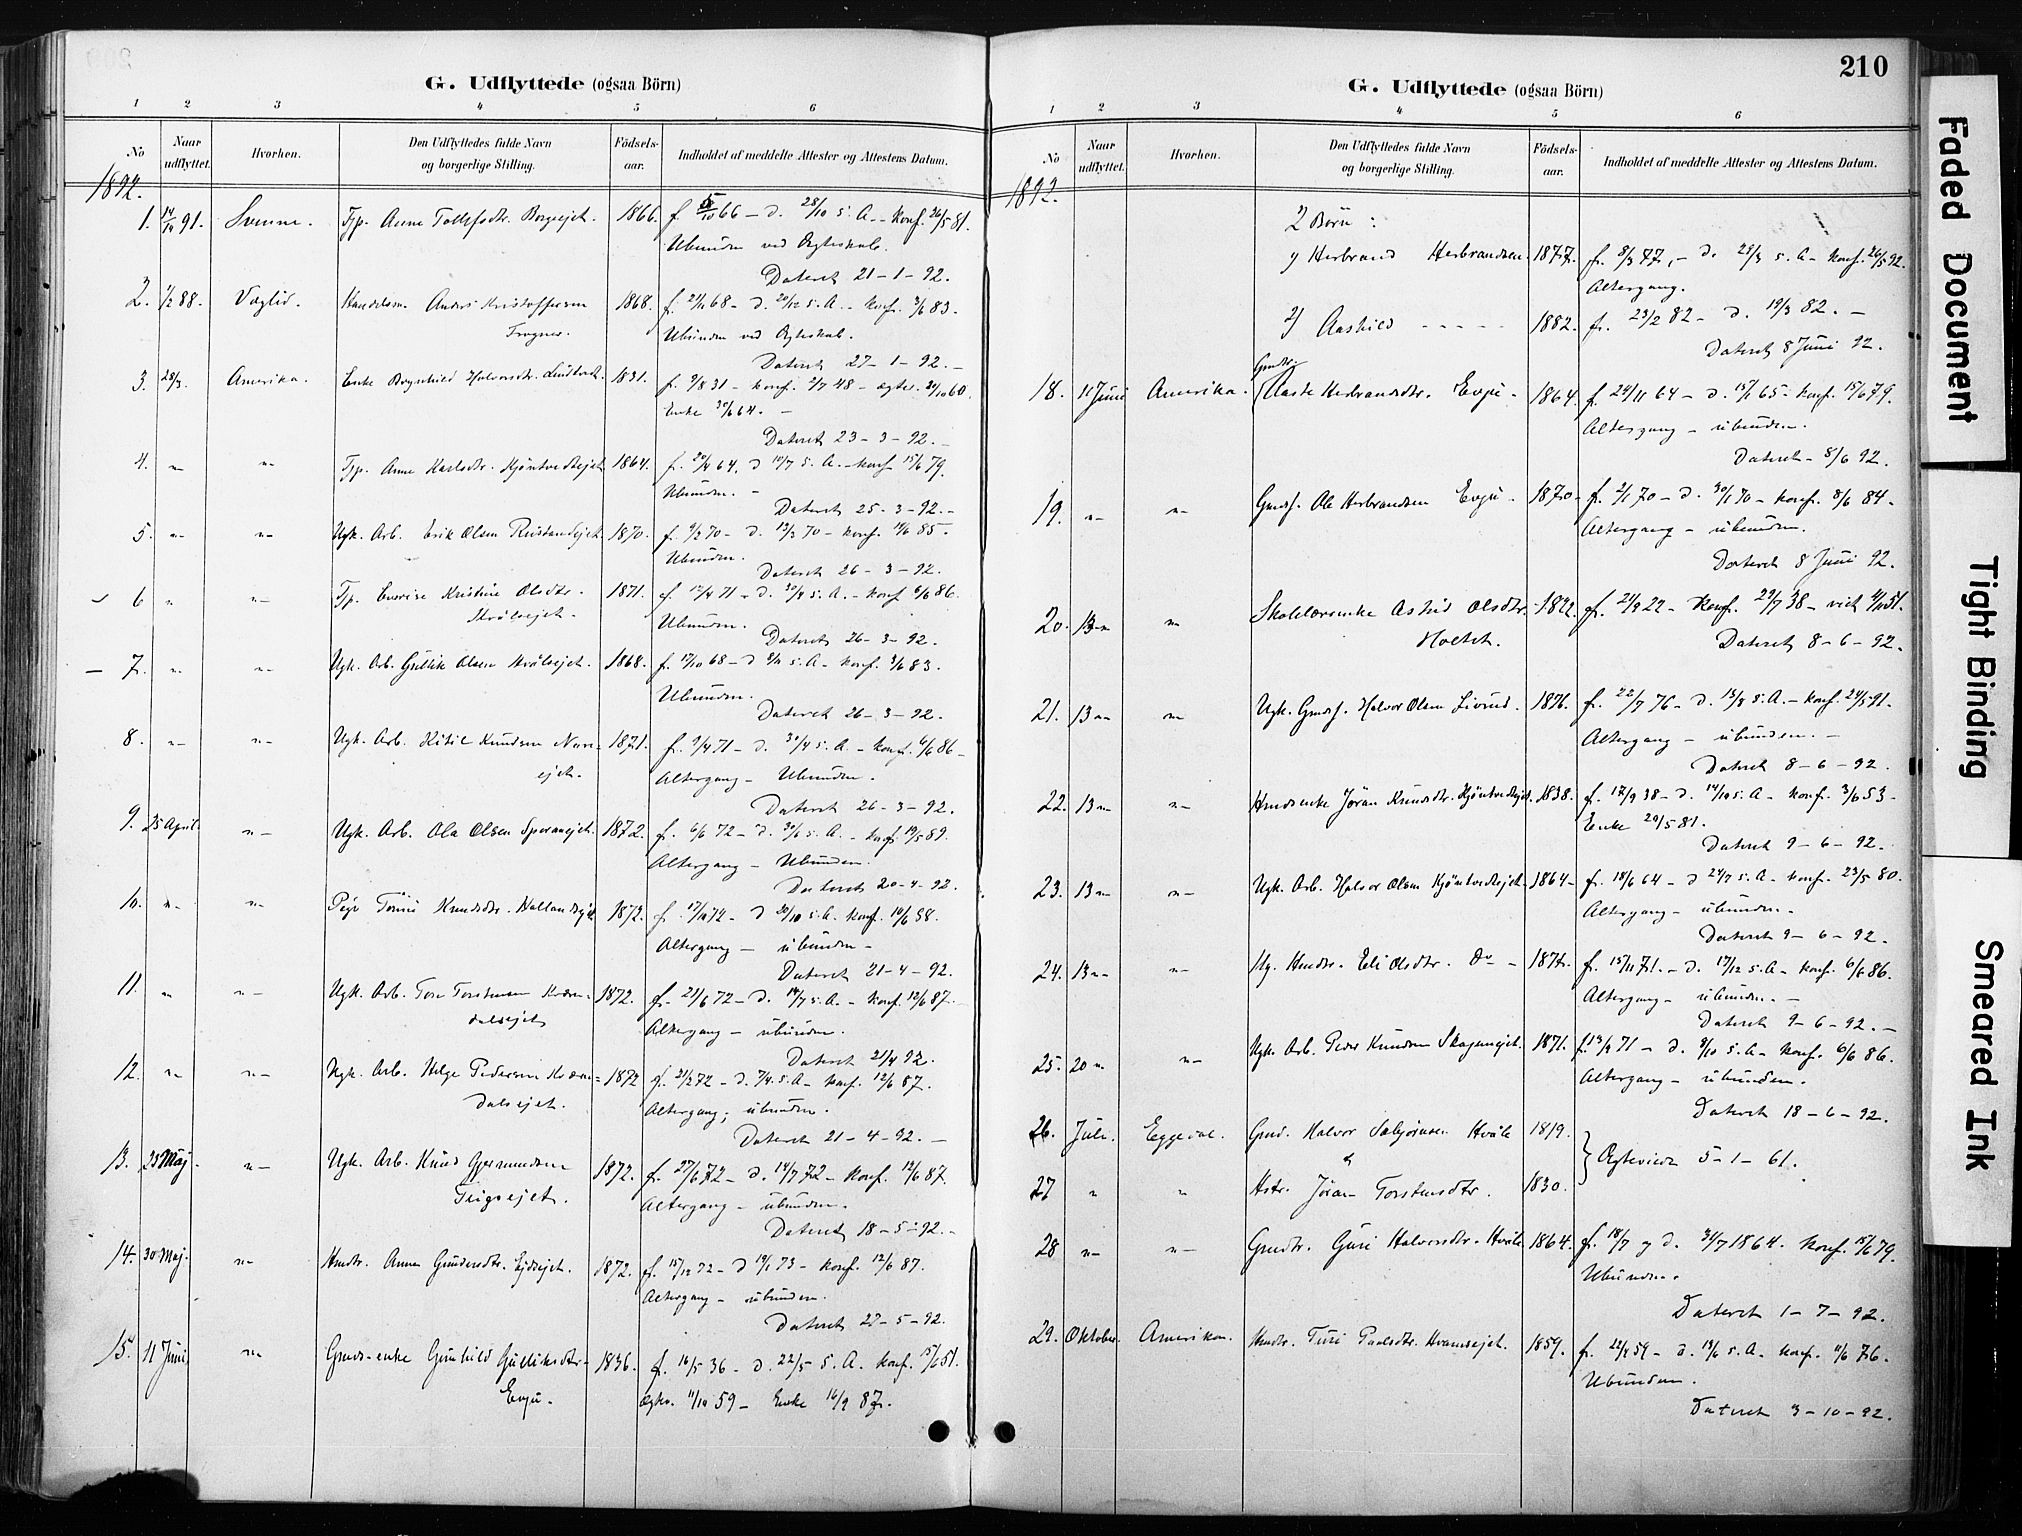 G. Udflyttede (ogsaa Börn)
1 2 3 4 5 6
No Naar udflyttet. Hvorhen. Den Udflyttedes fulde Navn og borgerlige Stilling. Födsels-aar. Indholdet af meddelte Attester og Attestens Datum.
1892.
1. 14/10 91. Svenne. Tjp. Anne Tollefsdtr. Borgeejet. 1866. f. 5/10 66 – d. 28/10 s. A. – Konf. 26/5 81.
Ubunden ved Ægteskab.
Dateret 21-1-92.
2. 1/2 88. Veglid. Handelsm. Anders Kristoffersen 1868. f. 21/11 68 – d. 20/12 s. A. – Konf. 3/6 83.
Trogner. Ubunden ved Ægteskab.
Dateret 27-1-92.
3. 28/3. Amerika. Enke Bergnhild Halvorsdtr. 1831. f. 9/8 31 – Konf. 2/7 48 – ægtev. 21/10 60.
Enke 30/6 64. –
Dateret 23-3-92. –
4. " " Tjp. Anne Karlsdtr. Kjöntvedtejet 1864. f. 20/4 64. d 10/7 s. A. – Konf 15/6 79.
Ubunden. –
Dateret 25-3-92. –
5. " " Ugk. Arb. Erik Olsen Rustandejet 1870. f. 9/2 70 – d. 13/3 70 – Konf. 14/6 85.
Ubunden.
Dateret 26-3-92.
6 " " Tp. Kristine Olsdtr. 1871. f 12/4 71 – d. 30/4 s. A. – Konf 6/6 86.
Ubunden.
Dateret 26-3-92.
7. " " Ugk. Arb. Gullik Olsen 1868. f. 17/10 68 – d 8/11 s. A – Konf. 3/6 83.
Ubunden.
Dateret 26-3-92.
8. " " Ugk. Arb. Kitil Knudsen 1871. f. 9/4 71 – d. 30/4 s. A. – Konf. 6/6 86 –
ejet. Altergang – Ubunden.
Dateret 26-3-92.
9. 25 April. " Ugk. Arb. Ola Olsen 1872. f. 6/6 72 – d. 30/6 s. A. – Konf 19/5 89.
Altergang – Ubunden.
Dateret 20-4-92.
10. " " Pige Tönni Knudsdtr. 1872. f. 17/9 72 – d 20/10 s. A. Konf. 10/6 88.
Altergang – ubunden –
Dateret 21-4-92.
11. " " Ugk. Arb. Tore Torstensen Kværn- 1872. f. 21/6 72 – d. 14/7 s. A. – Konf. 12/6 87.
dalsejet Altergang – ubunden.
Dateret 21/4 92.
12. " " Ugk. Arb. Helge Pedersen Kværn- 1872 f. 2/2 72 – d. 7/4 s. A – Konf. 12/6 87.
dalsejet. Altergang, ubunden.
Dateret 21-4-92. –
13. 23 Maj. " Ugk. Arb. Knud Gjermundsen 1872. f. 27/6 72 – d. 14/7 72 – Konf. 12/6 87.
Altergang – ubunden.
Dateret 18-5-92. –
14. 30 Maj. " Hmdtr. Anne Gundersdtr. 1872. f. 15/12 72 – d 19/1 73 – Konf. 12/6 87.
Altergang – ubunden.
Dateret 27-5-92.
15. 11 Juni " Gmds-enke Gunhild Gulliksdtr. 1836. f. 16/5 36 – d. 22/5 s. A. Konf. 15/6 51.
Evju. ægtev. 11/10 59 – Enke 16/9 87.
210
G. Udflyttede (ogsaa Börn)
1 2 3 4 5 6
No Naar udflyttet. Hvorhen. Den Udflyttedes fulde Navn og borgerlige Stilling. Födsels-aar. Indholdet af meddelte Attester og Attestens Datum.
1892.
2 Börn:
1) Herbrand Herbrandsen. 1877. f. 8/3 77, – d. 25/3 s. A – Konf. 26/5 92.
Altergang.
2) Aashild 1882. f. 23/2 82 – d. 19/3 82. –
Dateret 8 Juni 92.
18. 11 Juni Amerika. Gmdtr. Aaste Herbrandsdtr. Evju. 1864. f. 24/11 64 – d. 15/1 65 – Konf. 15/6 79.
Altergang – ubunden.
Dateret 8/6 92.
19. " " Gmdsf. Ole Herbrandsen Evju. 1870 f. 2/1 70 – d. 30/1 70 – Konf. 8/6 84 –
Altergang – ubunden.
Dateret 8 Juni 92.
20. 13 " " Skolelærerenke Astrid Olsdtr. 1822. f. 21/9 22 – Konf. 29/7 38 – viet 4/11 51.
Holtet. Dateret 8-6-92.
21. 13 " " Ugk. Gmdsf. Halvor Olsen 1876. f. 22/7 76 – d. 13/8 s. A. – Konf. 24/5 91 –
Altergang – ubunden. –
Dateret 8-6-92.
22. 13 " " Hmdsenke Jöran Knudsdtr. Kjöntvedtejet 1838. f. 17/9 38 – d. 14/10 s. A – Konf. 3/6 53 –
Enke 20/5 81.
Dateret 9-6-92.
23. 13 " " Ugk. Arb. Halvor Olsen Kjöntvedtejet 1864 – f. 18/6 64 – d 24/7 s. A – Konf. 23/5 80.
Altergang – ubunden. –
Dateret 9-6-92.
24. 13 " " Ug. Hmdtr. Eli Olsdtr. Do – 1871. f. 15/11 71. – d. 17/12 s. A – Konf. 6/6 86.
Altergang – ubunden. –
Dateret 9-6-92. –
25. 20 " " Ugk. Arb. Peder Knudsen 1871. f. 13/9 71 – d. 8/10 s. A – Konf. 6/6 86.
Altergang – ubunden.
Dateret 18-6-92.
26. Juli. Eggedal. Gmd. Halvor Hvåle 1819.
& } Ægteviede 5-1-61.
27 " " Hstr. Jöran Torstensdtr. 1830.
28 " " Gmdtr. Guri Halvorsdtr. Hvåle 1864. f. 18/7 & d. 31/7 1864. Konf. 15/6 79.
Ubunden.
Dateret 1-7-92.
29. Oktober. Amerika. Hmdtr. Turi Paalsdtr. Hvamsejet. 1859. f. 22/5 59 – d. 19/6 s. A – Konf. 11/6 76.
Ubunden.
Dateret 3-10-92.
Faded Document
Tight Binding
Smeared Ink